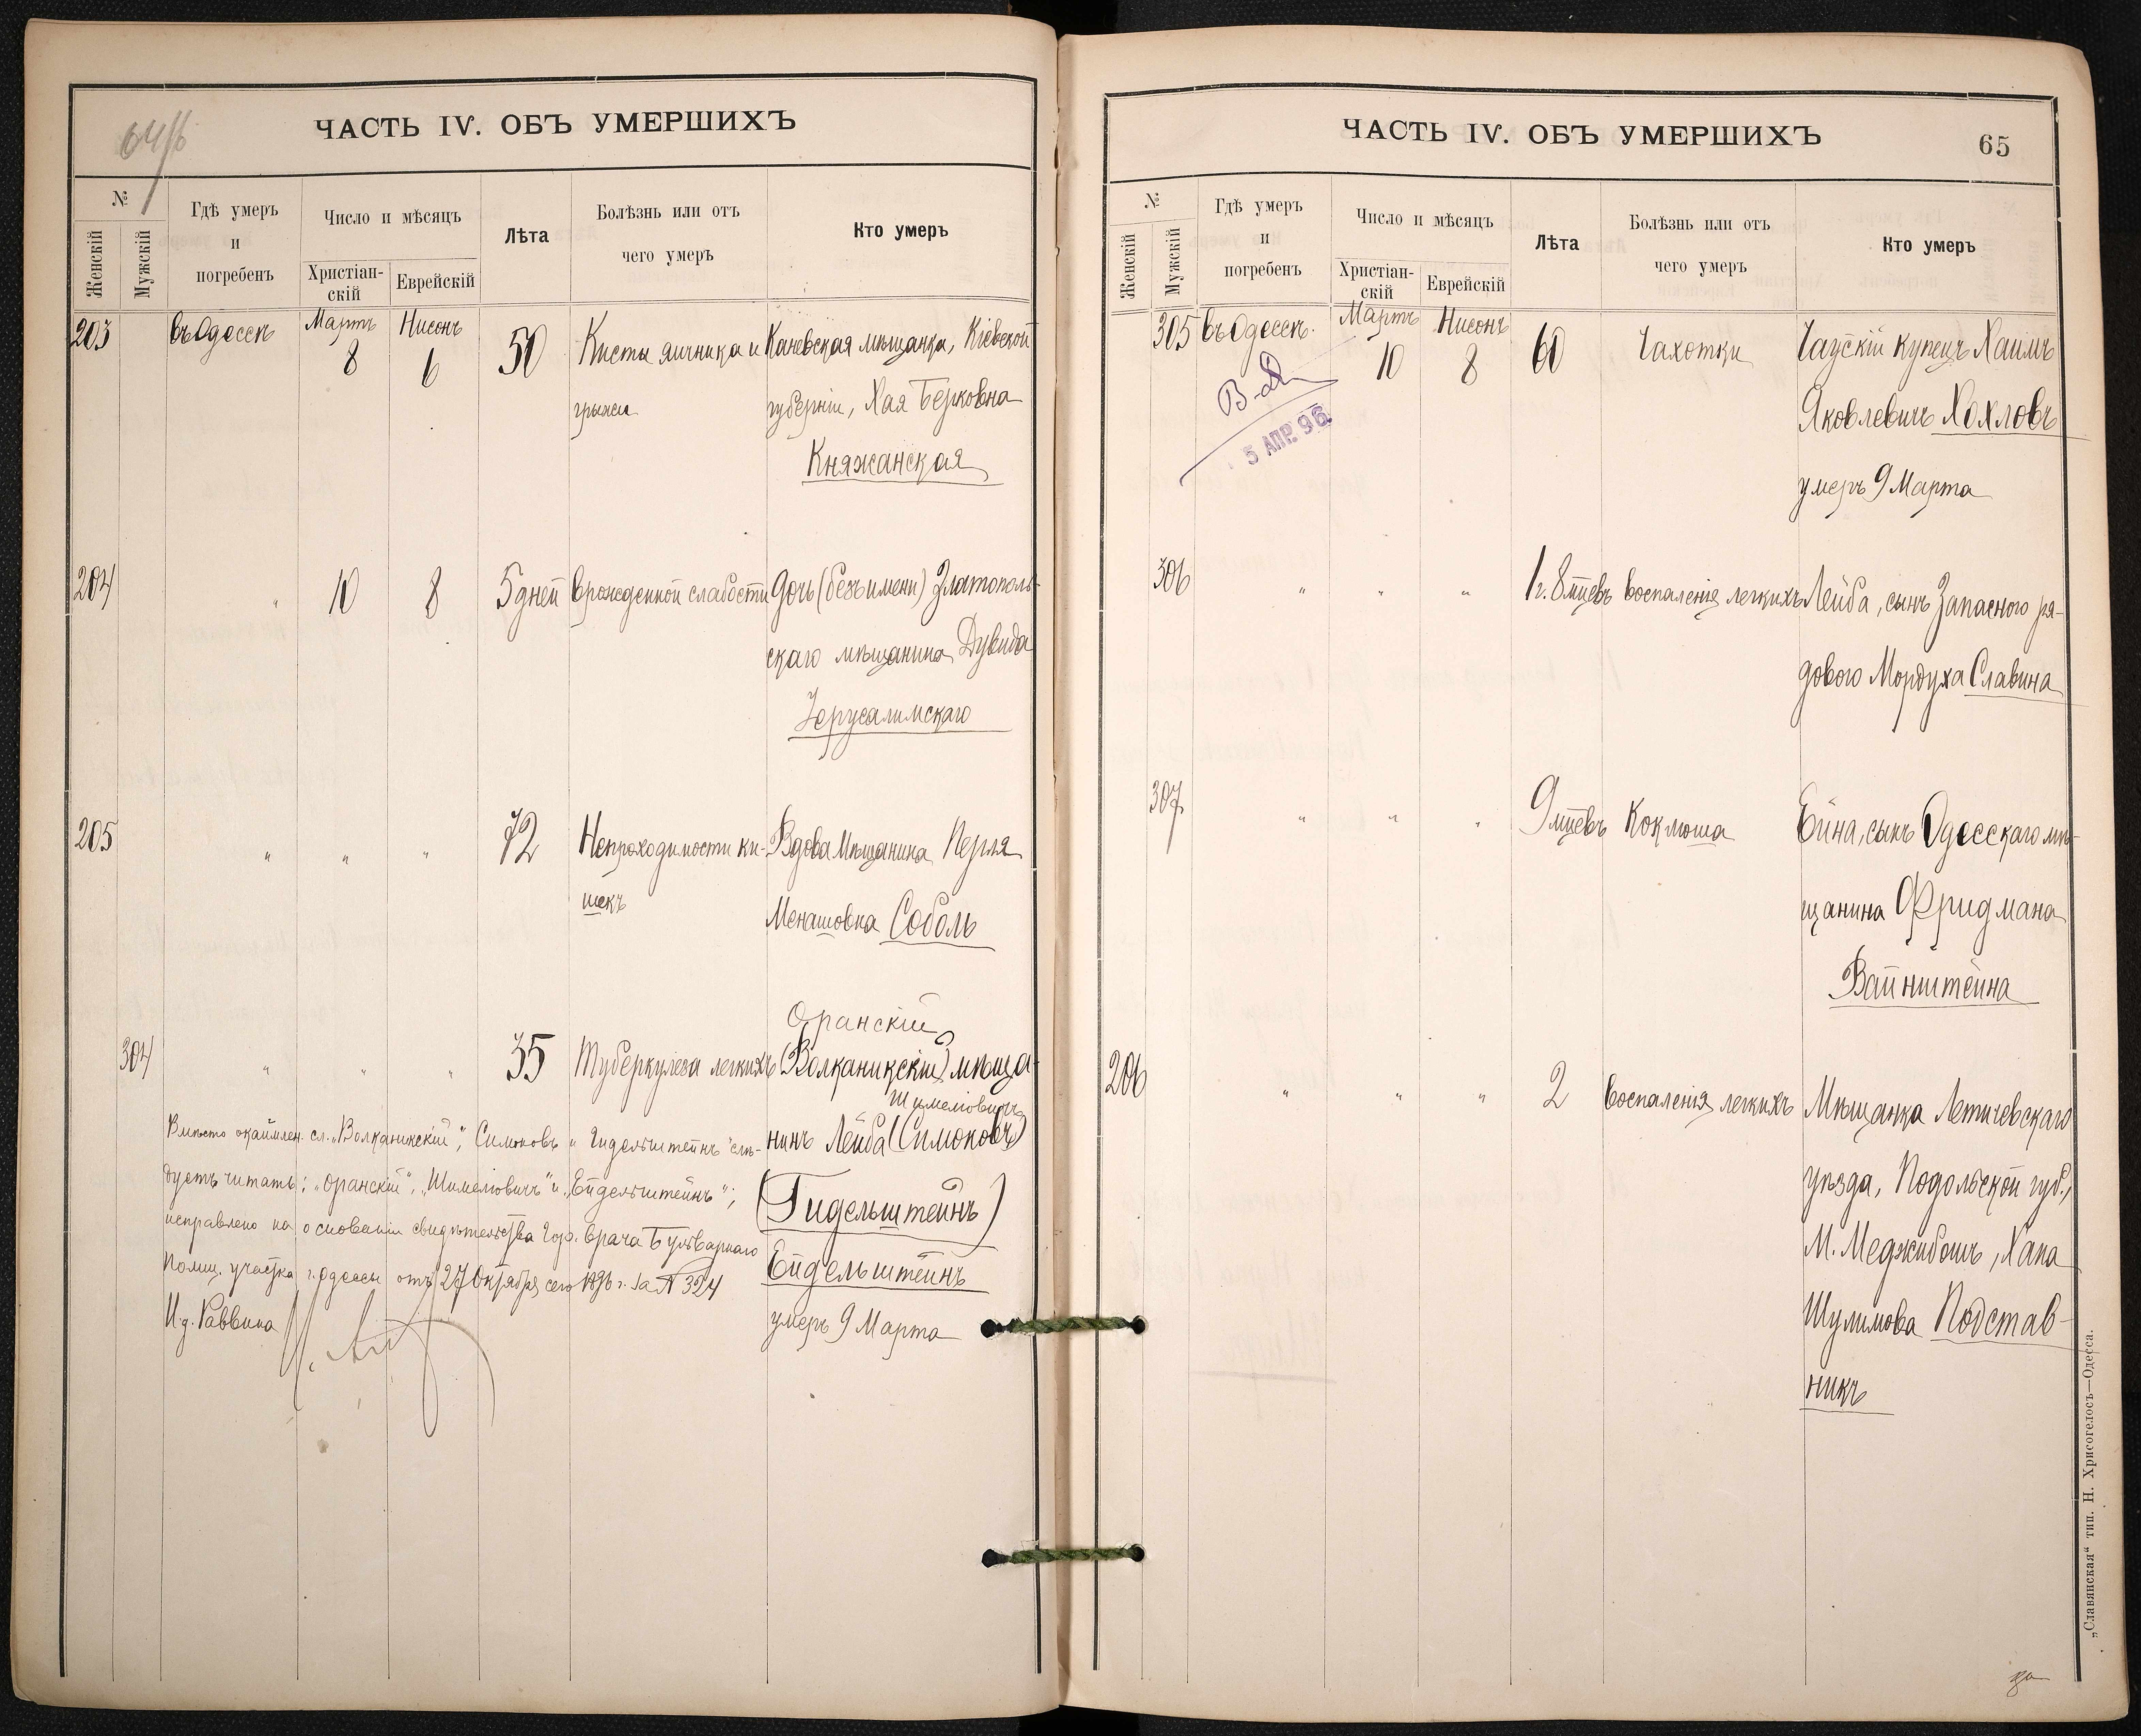 64/б
ЧАСТЬ IV. ОБЪ УМЕРШИХЪ
№
Женскій
Мужскій
Гдѣ умеръ
и
погребенъ
Число и мѣсяцъ
Христіан-
скій
Еврейскій
Лѣта
Болѣзнь или отъ
чего умеръ
Кто умеръ
203 въ Одессѣ Мартъ 8 Нисонъ 6 50 Кисты яичника и Каневская мѣщанка, Кіевской
грыжи губерніи, Хая Берковна
Княжанская
204 " 10 8 5 дней врожденной слабости Дочь (безъ имени) Златополь-
скаго мѣщанина Дувида
Іерусалимскаго
205 " " " 72 Непроходимости ки- Вдова Мѣщанина Перля
шекъ Менашовна Соболь
Оранскій
304 " " " 35 Туберкулеза легкихъ (Волканикскій) мѣща-
Шимеліовичъ
нинъ Лейба (Симоновъ)
(Гидельштейнъ)
Ейдельштейнъ
умеръ 9 Марта
Вмѣсто окаймлен. сл. „Волканикскій", Симоновъ и Гидельштейнъ" слѣ-
дуетъ читать: „Оранскій", „Шимеліовичъ" и „Ейдельштейнъ";
исправлено на основаніи свидѣтельства Гор. врача Бульварнаго
Полиц. участка г. Одессы отъ 27 Октября сего 1896 г. за № 324
И. д. Раввина
ЧАСТЬ IV. ОБЪ УМЕРШИХЪ
65
№
Женскій
Мужскій
Гдѣ умеръ
и
погребенъ
Число и мѣсяцъ
Христіан-
скій
Еврейскій
Лѣта
Болѣзнь или отъ
чего умеръ
Кто умеръ
305 въ Одессѣ. Мартъ 10 Нисонъ 8 60 Чахотки Чаускій купецъ Хаимъ
Яковлевичъ Хохловъ
умеръ 9 Марта
5 АПР. 96.
306 " " " 1 г. 8 мцевъ воспаленія легкихъ Лейба, сынъ Запасного ря-
дового Мордуха Славина
307 " " " 9 мцевъ Коклюша Ейна, сынъ Одесскаго мѣ-
щанина Фридмана
Вайнштейна
206 " " " 2 воспаленія легкихъ Мѣщанка Летичевскаго
уѣзда, Подольской губ.,
М. Меджибошъ, Хана
Шулимова Подстав-
никъ
„Славянская" тип. Н. Хрисогелосъ—Одесса.